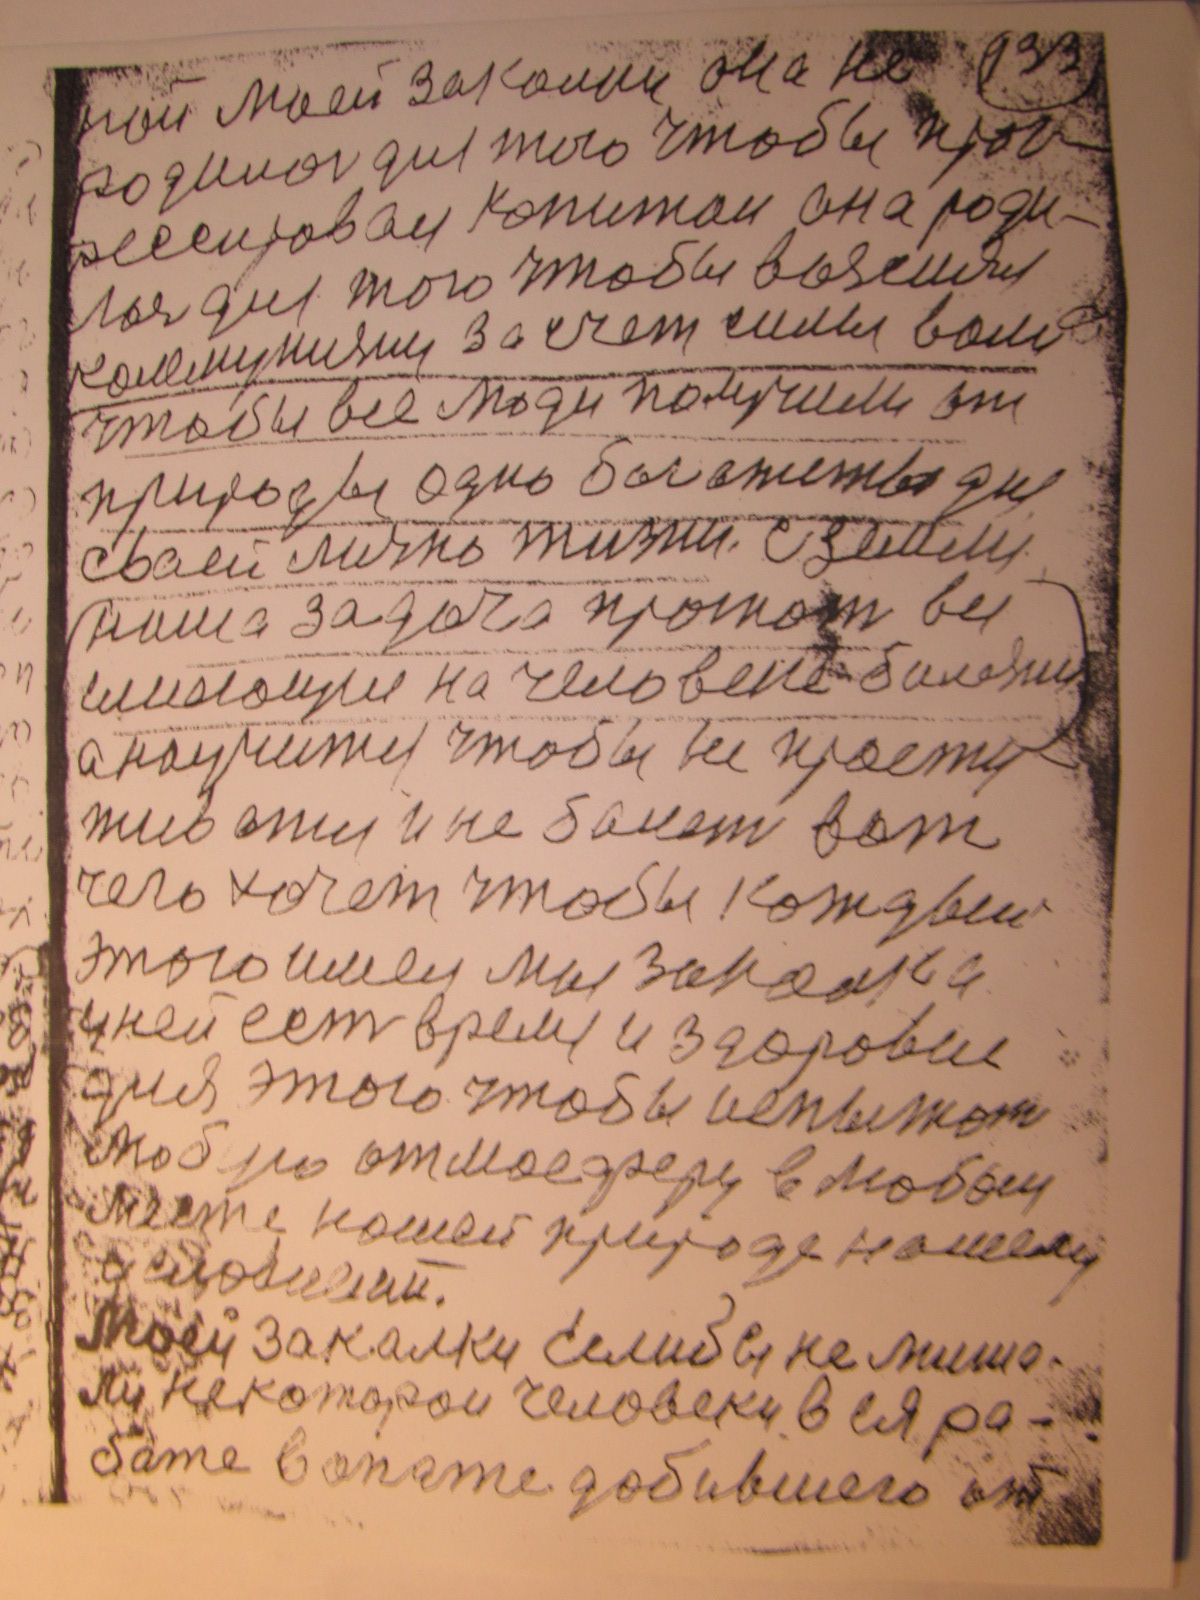 ной моей закалки она не 133
родилас для того чтобы прог
рессировал копитал она роди-
лас для того чтобы
за счет силы воли
чтобы все люди получили от
природы одно богатство для
своей лично жизни. с земли
наша задача прогнат все
на человеке болезни
а научится чтобы не просту
живатся и не болет вот
чего хочет чтобы каждый
этого имел моя закалка
у ней ест время и здоровие
для этого чтобы испытат
любую отмосферу в любом
месте нашей природе нашему
условий.
Моей закалки если бы не меша-
ли некоторои человеки вся ра-
боте в опате добившего от